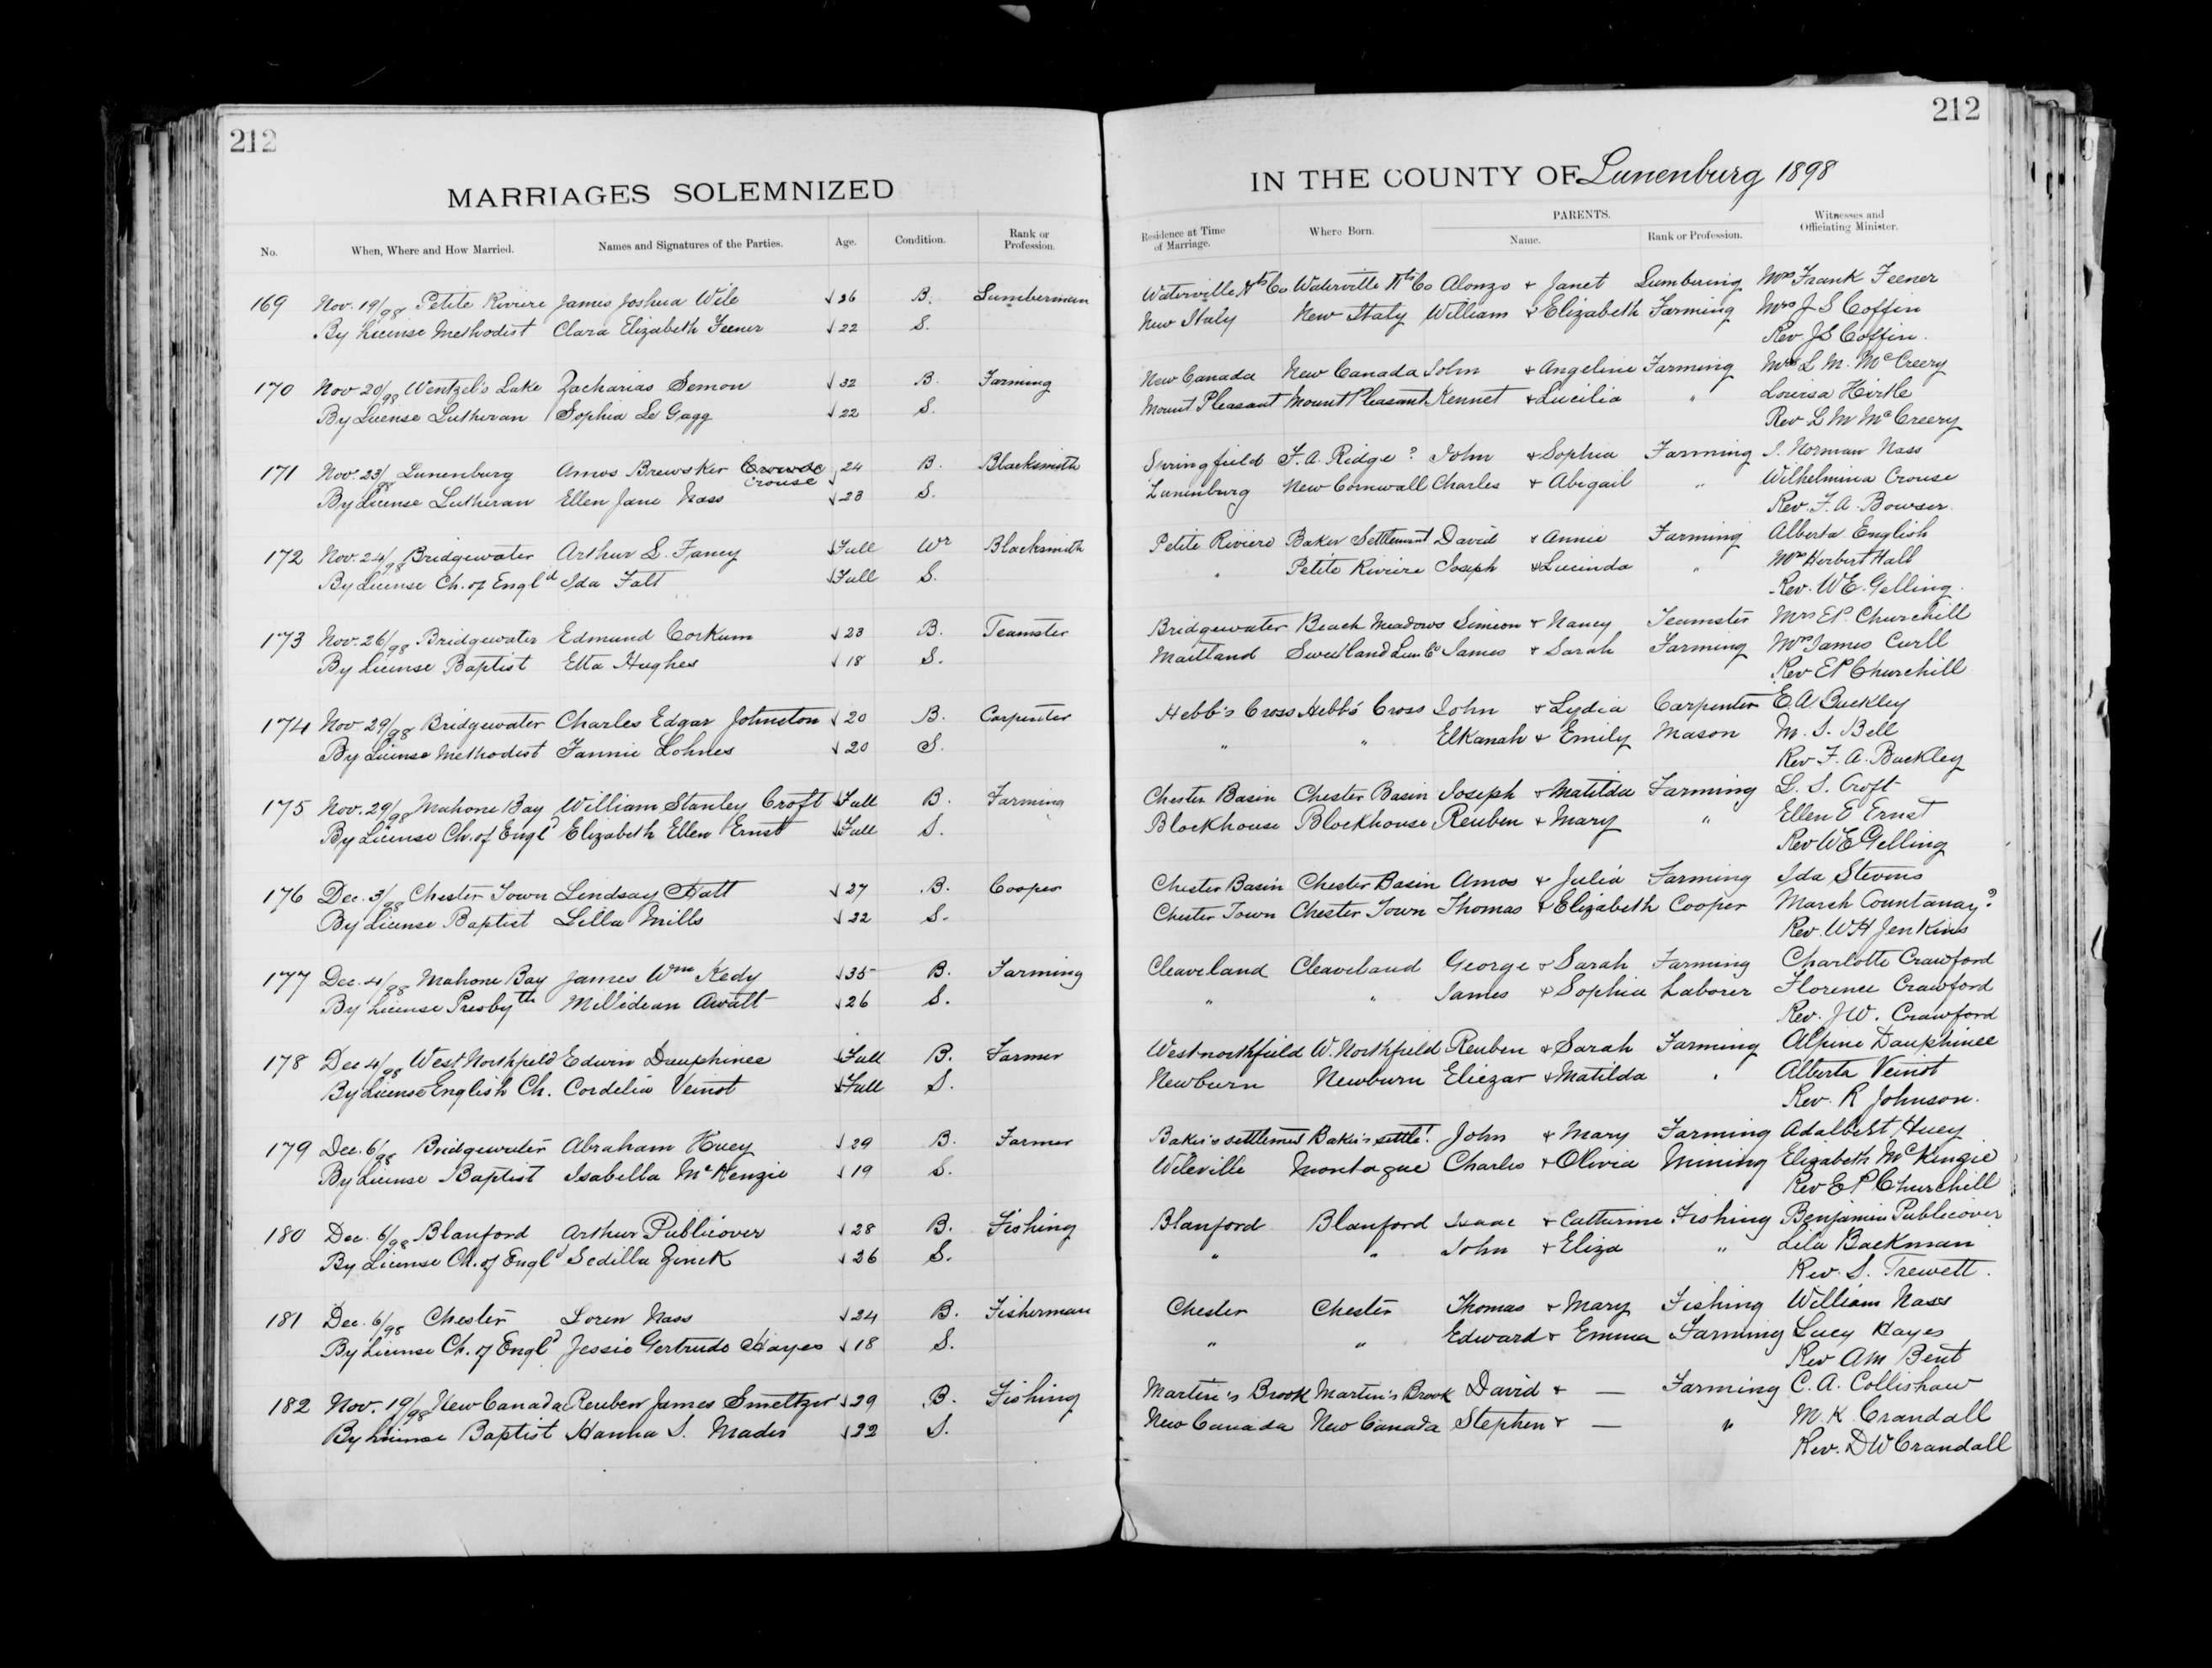 212
MARRIAGES SOLEMNIZED
No. When, Where and How Married. Names and Signatures of the Parties. Age. Condition. Rank or Profession.
169 Nov. 19/98 Petite Riviere James Joshua Wile 26 B. Lumberman
By License Methodist Clara Elizabeth Feener 22 S.
170 Nov 20/98 Wentzel's Lake Zacharias Semon 32 B. Farming
By License Lutheran Sophia Le Gagg 22 S.
171 Nov. 23/98 Lunenburg Amos Brewster Crouse 24 B. Blacksmith
By License Lutheran Ellen Jane Nass 23 S.
172 Nov. 24/98 Bridgewater Arthur L. Fancy Full Wr Blacksmith
By License Ch. of Engld Ida Falt Full S.
173 Nov. 26/98 Bridgewater Edmund Corkum 23 B. Teamster
By License Baptist Etta Hughes 18 S.
174 Nov. 29/98 Bridgewater Charles Edgar Johnston 20 B. Carpenter
By License Methodist Fannie Lohnes 20 S.
175 Nov. 29/98 Mahone Bay William Stanley Croft Full B. Farming
By License Ch. of Engld Elizabeth Ellen Ernst Full S.
176 Dec. 3/98 Chester Town Lindsay Hatt 27 B. Cooper
By License Baptist Lilla Mills 22 S.
177 Dec. 4/98 Mahone Bay James Wm Kedy 35 B. Farming
By License Presbyth Millidean Awalt 26 S.
178 Dec 4/98 West Northfield Edwin Dauphinee Full B. Farmer
By License English Ch. Cordelia Veinot Full S.
179 Dec. 6/98 Bridgewater Abraham Huey 29 B. Farmer
By License Baptist Isabella McKenzie 19 S.
180 Dec. 6/98 Blanford Arthur Publicover 28 B. Fishing
By License Ch. of Engld Sedilla Zinck 26 S.
181 Dec. 6/98 Chester Loren Nass 24 B. Fisherman
By License Ch. of Engld Jessie Gertrude Hayes 18 S.
182 Nov. 19/98 New Canada Reuben James Smeltzer 29 B. Fishing
By License Baptist Hanna S. Mader 22 S.
212
IN THE COUNTY OF Lunenburg 1898
Residence at Time of Marriage. Where Born. PARENTS. Name. Rank or Profession. Witnesses and Officiating Minister.
Waterville Hts Co Waterville Hts Co Alonzo & Janet Lumbering Mrs Frank Feener
New Italy New Italy William & Elizabeth Farming Mrs J S Coffin
Rev J S Coffin.
New Canada New Canada John & Angeline Farming Mrs L. M. McCreery
Mount Pleasant Mount Pleasant Kennet & Lucilia " Louisa Hirtle
Rev L M McCreery
Springfield F. A. Ridge? John & Sophia Farming J. Norman Nass
Lunenburg New Cornwall Charles & Abigail " Wilhelmina Crouse
Rev. F. A. Bowser.
Petite Riviere Baker Settlement David & Annie Farming Alberta English
" Petite Riviere Joseph & Lucinda " Mrs Herbert Hall
Rev. W E. Gelling.
Bridgewater Beach Meadows Simeon & Nancy Teamster Mrs E P. Churchill
Maitland Sweetland Lun Co James & Sarah Farming Mrs James Curll
Rev E P Churchill
Hebb's Cross Hebb's Cross John & Lydia Carpenter E. A Buckley
" " Elkanah & Emily Mason M. S. Bell
Rev F. A. Buckley
Chester Basin Chester Basin Joseph & Matilda Farming L. S. Croft
Blockhouse Blockhouse Reuben & Mary " Ellen E Ernst
Rev W E Gelling
Chester Basin Chester Basin Amos & Julia Farming Ida Stevens
Chester Town Chester Town Thomas & Elizabeth Cooper Marsh Countanay?
Rev. W H Jenkins
Cleaveland Cleaveland George & Sarah Farming Charlotte Crawford
" " James & Sophia Laborer Florence Crawford
Rev. J W. Crawford
West northfield W. Northfield Reuben & Sarah Farming Alpine Dauphinee
Newburn Newburn Eliezar & Matilda " Alberta Veinot
Rev. R Johnson.
Baker's settlement Baker's settlet John & Mary Farming Adalbert Huey
Wileville Montague Charles & Olivia Mining Elizabeth McKinzie
Rev E P Churchill
Blanford Blanford Isaac & Catturine Fishing Benjamin Publicover
" " John & Eliza " Lila Backman
Rev. S. Trewett.
Chester Chester Thomas & Mary Fishing William Nass
" " Edward & Emma Farming Lucy Hayes
Rev A M Bent
Martin's Brook Martin's Brook David & — Farming C. A. Collishaw
New Canada New Canada Stephen & — " M. K Crandall
Rev. D W Crandall